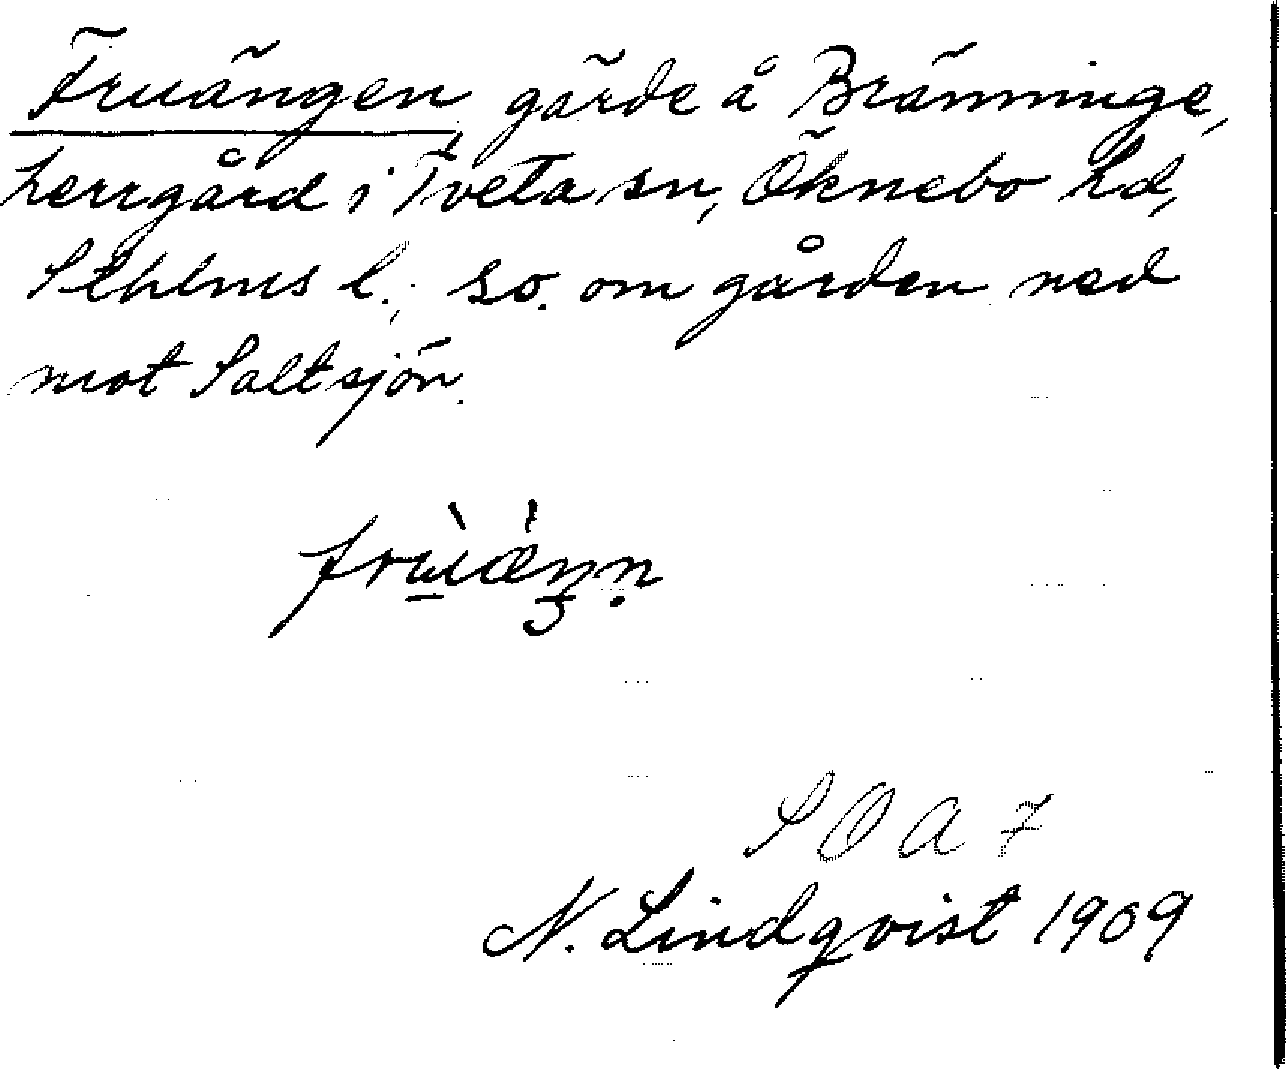 Fruängen, gärde å Bränninge,
herrgård i Tveta sn, Öknebo hd,
Sthlms l.; so. om gården ned
mot Saltsjön.
frùǽŋn
S O A 7
N. Lindqvist 1909